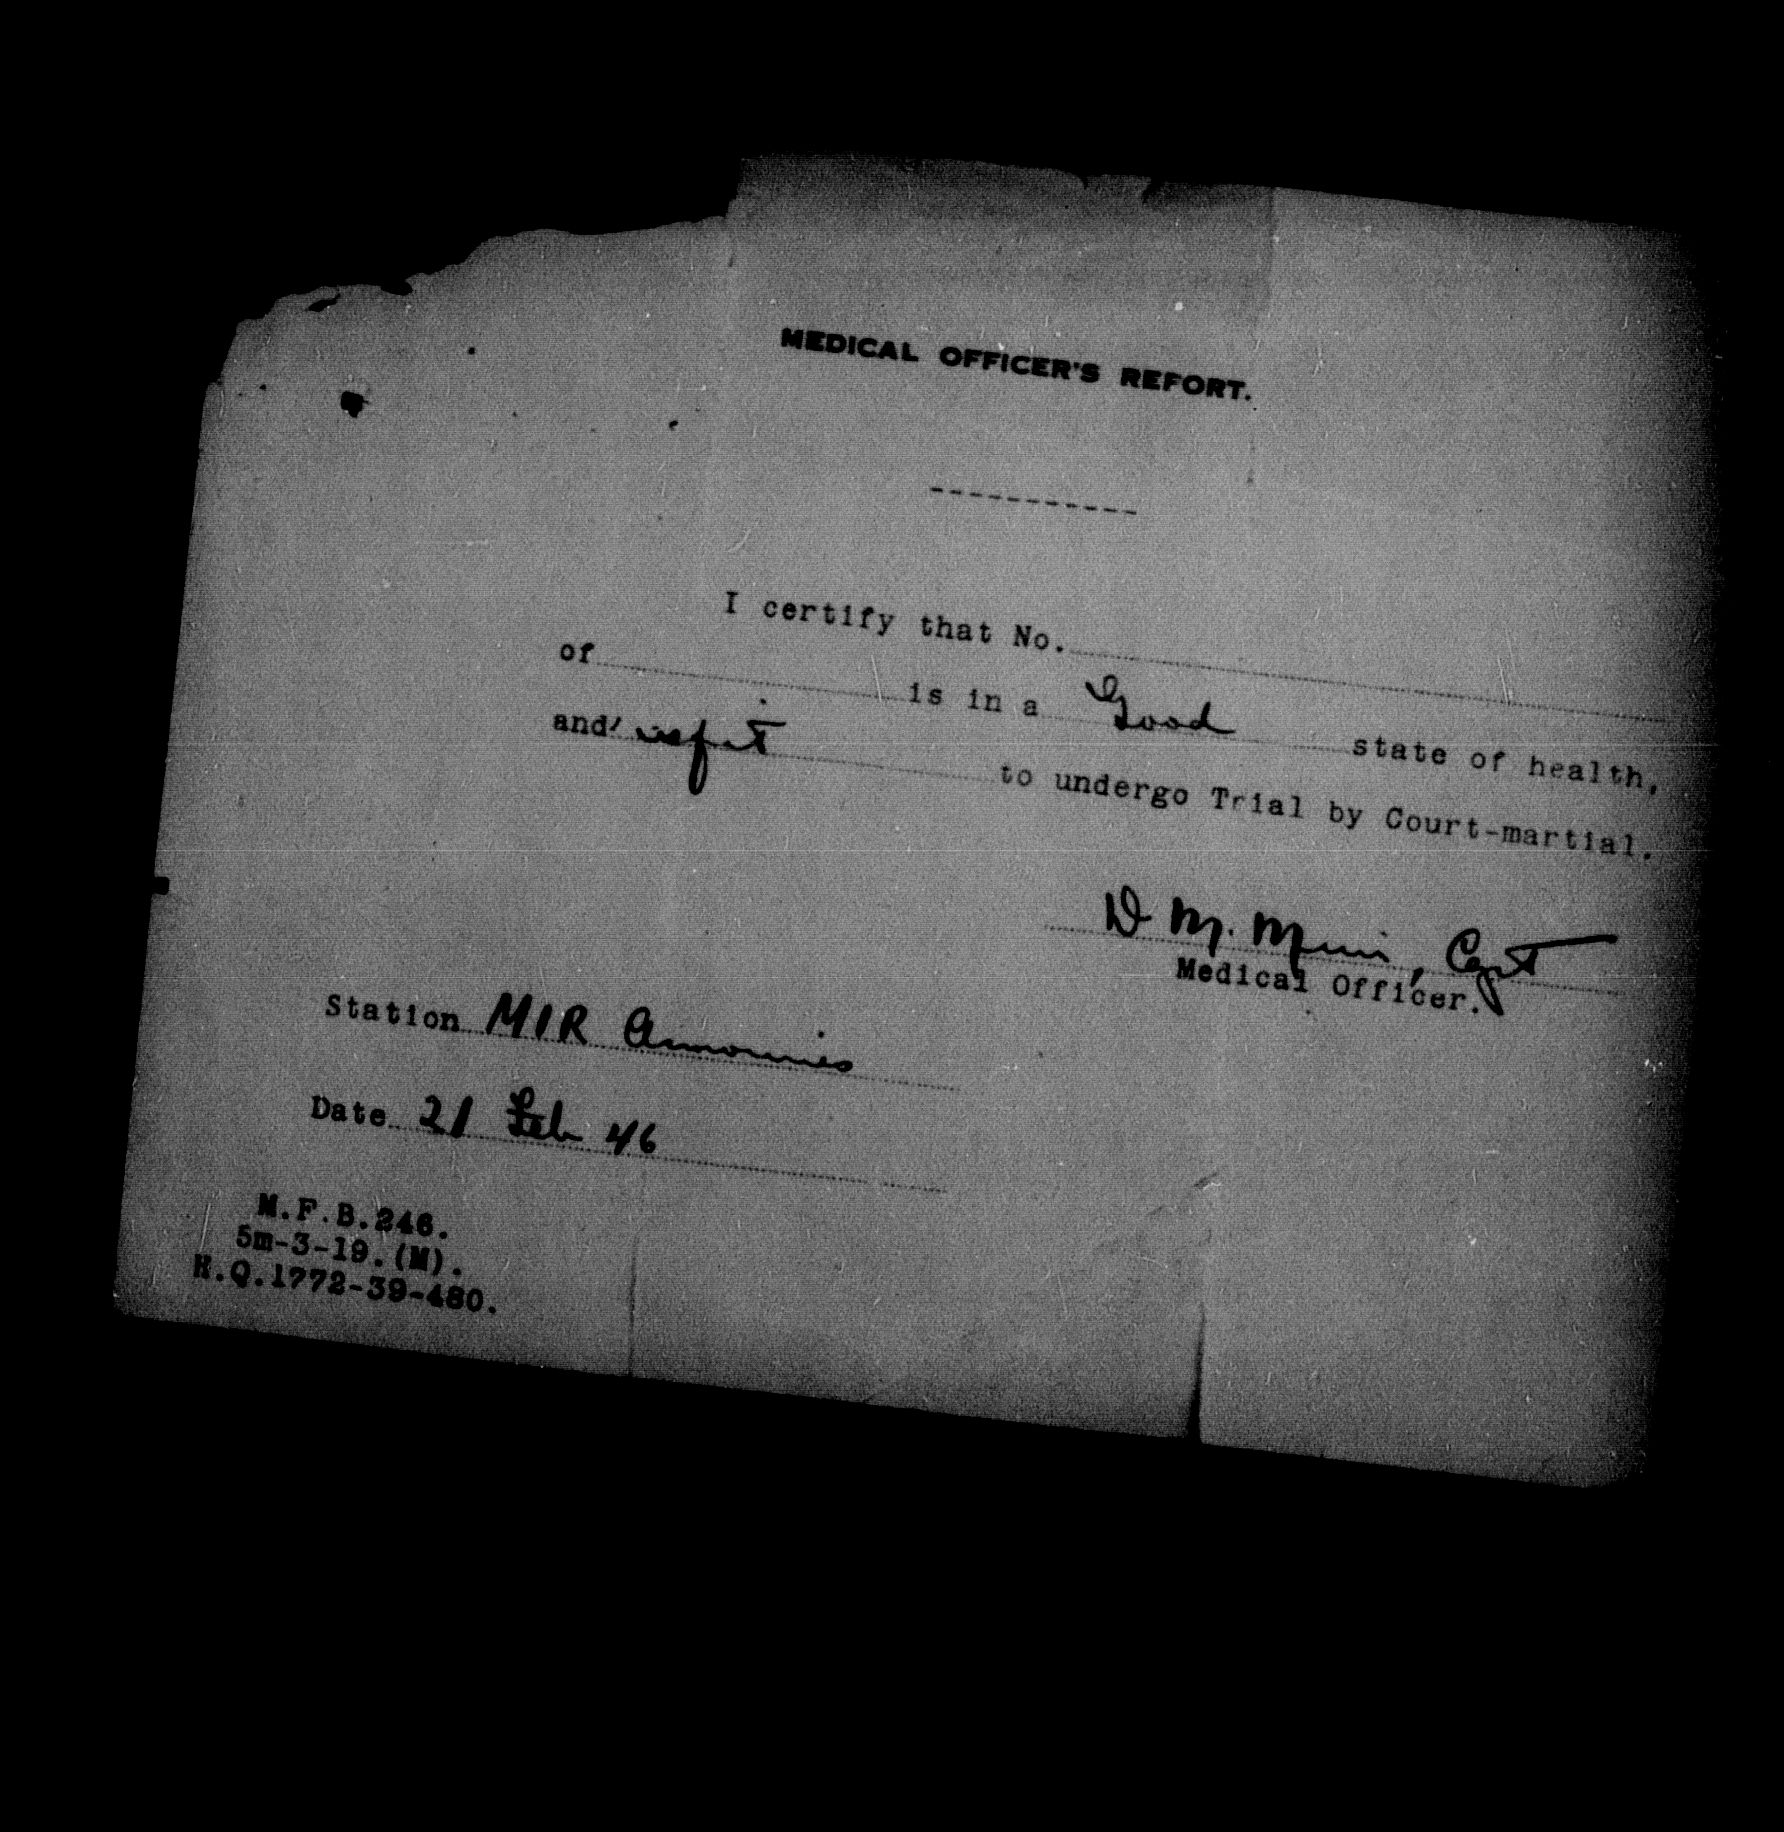 MEDICAL OFFICER'S REPORT.
-----------
I certify that No.
of is in a Good state of health,
and is fit to undergo Trial by Court-martial.
D M. Muir, Capt
Medical Officer.
Station MIR Armouries
Date 21 Feb 46
M.F.B.246.
5m-3-19.(M).
H.Q.1772-39-480.